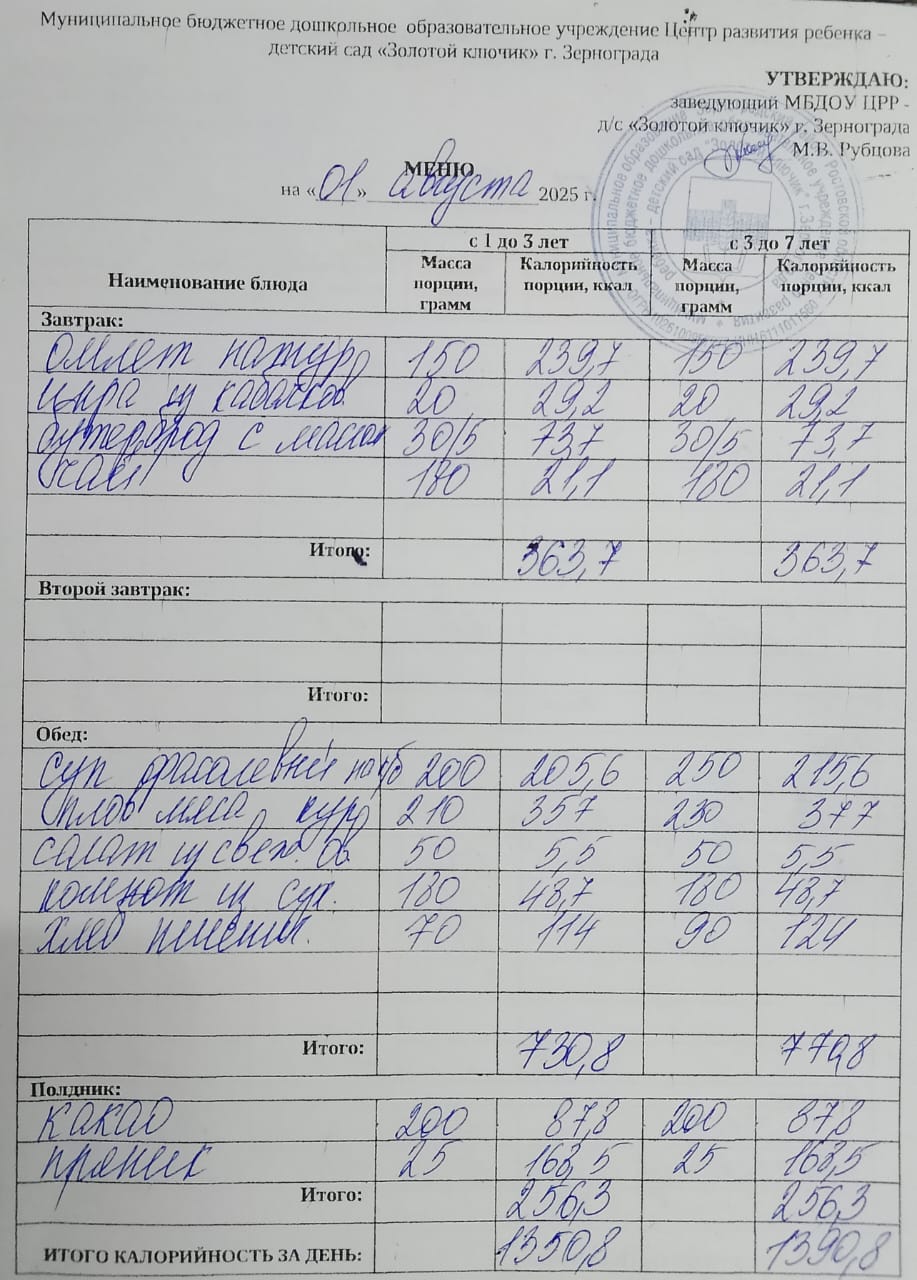 Муниципальное бюджетное дошкольное образовательное учреждение Центр развития ребенка –
детский сад «Золотой ключик» г. Зернограда
УТВЕРЖДАЮ:
заведующий МБДОУ ЦРР -
д/с «Золотой ключик» г. Зернограда
М.В. Рубцова
МЕНЮ
на «01» августа 2025 г.
Наименование блюда
с 1 до 3 лет с 3 до 7 лет
Масса порции, грамм Калорийность порции, ккал Масса порции, грамм Калорийность порции, ккал
Завтрак:
омлет натур 150 239,7 150 239,7
икра из кабачков 20 29,2 20 29,2
бутерброд с маслом 30/5 73,7 30/5 73,7
чай 180 21,1 180 21,1
Итого: 363,7 363,7
Второй завтрак:
Итого:
Обед:
суп фасолевый на к/б 200 205,6 250 215,6
плов мяса кур 210 357 230 377
салат из свеж. ов 50 5,5 50 5,5
компот из сух. 180 48,7 180 48,7
хлеб пшенич. 70 114 90 124
Итого: 730,8 770,8
Полдник:
какао 200 87,8 200 87,8
пряник 25 168,5 25 168,5
Итого: 256,3 256,3
ИТОГО КАЛОРИЙНОСТЬ ЗА ДЕНЬ: 1350,8 1390,8